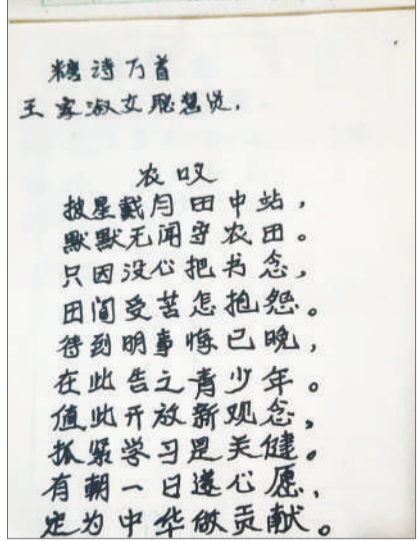 糟诗万首
王家淑女聪慧贤，
农叹
披星戴月田中站，
默默无闻守农田。
只因没心把书念，
田间受苦怎抱怨。
待到明事悔已晚，
在此告之青少年。
值此开放新观念，
抓紧学习是关健。
有朝一日遂心愿，
定为中华做贡献。